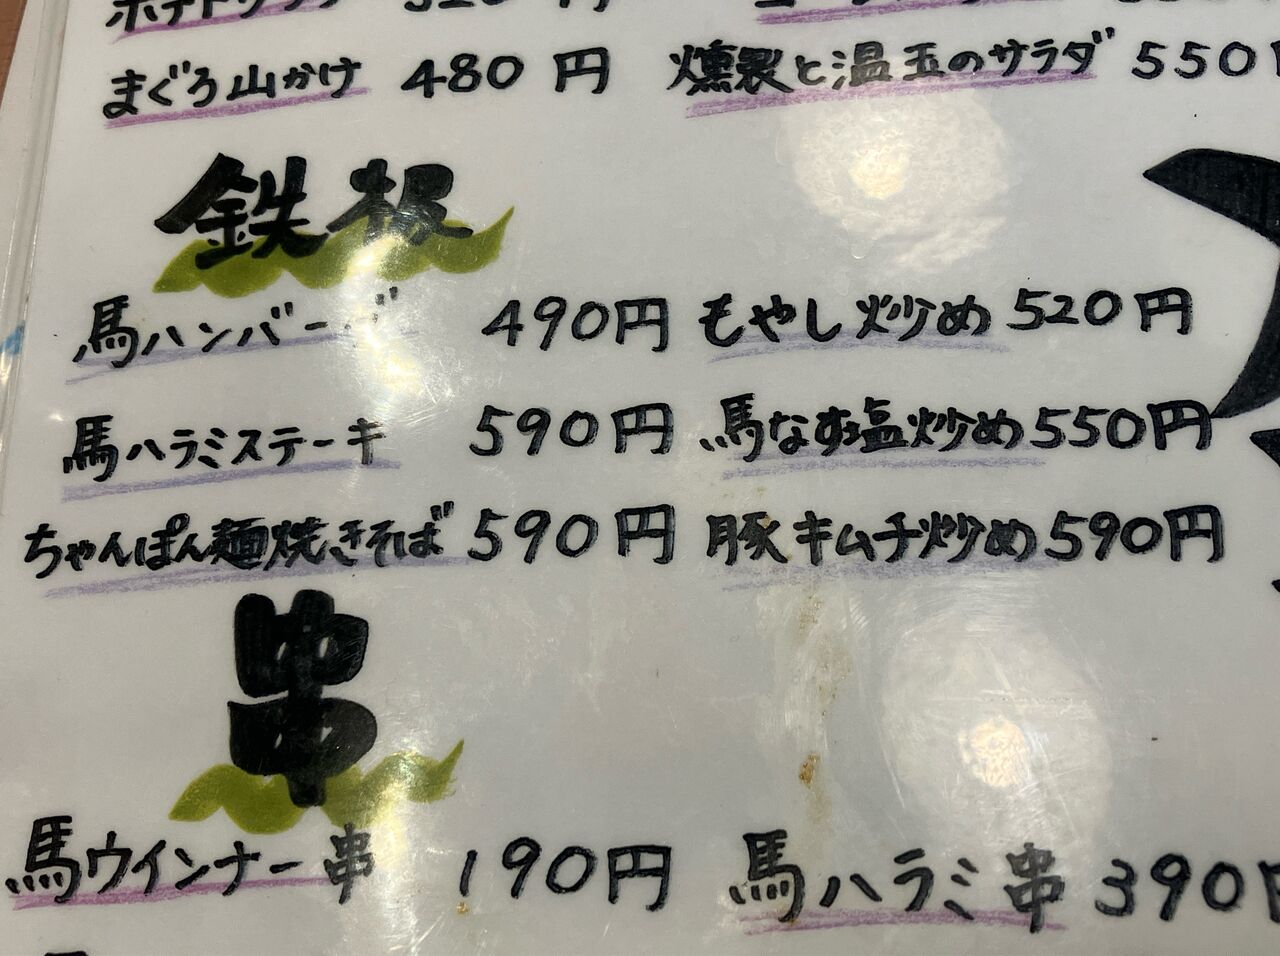 ポテトサラダ 520円
まぐろ山かけ 480円 燻製と温玉のサラダ 550円
鉄板
馬ハンバーグ 490円 もやし炒め 520円
馬ハラミステーキ 590円 馬なす塩炒め 550円
ちゃんぽん麺焼きそば 590円 豚キムチ炒め 590円
串
馬ウインナー串 190円 馬ハラミ串 390円